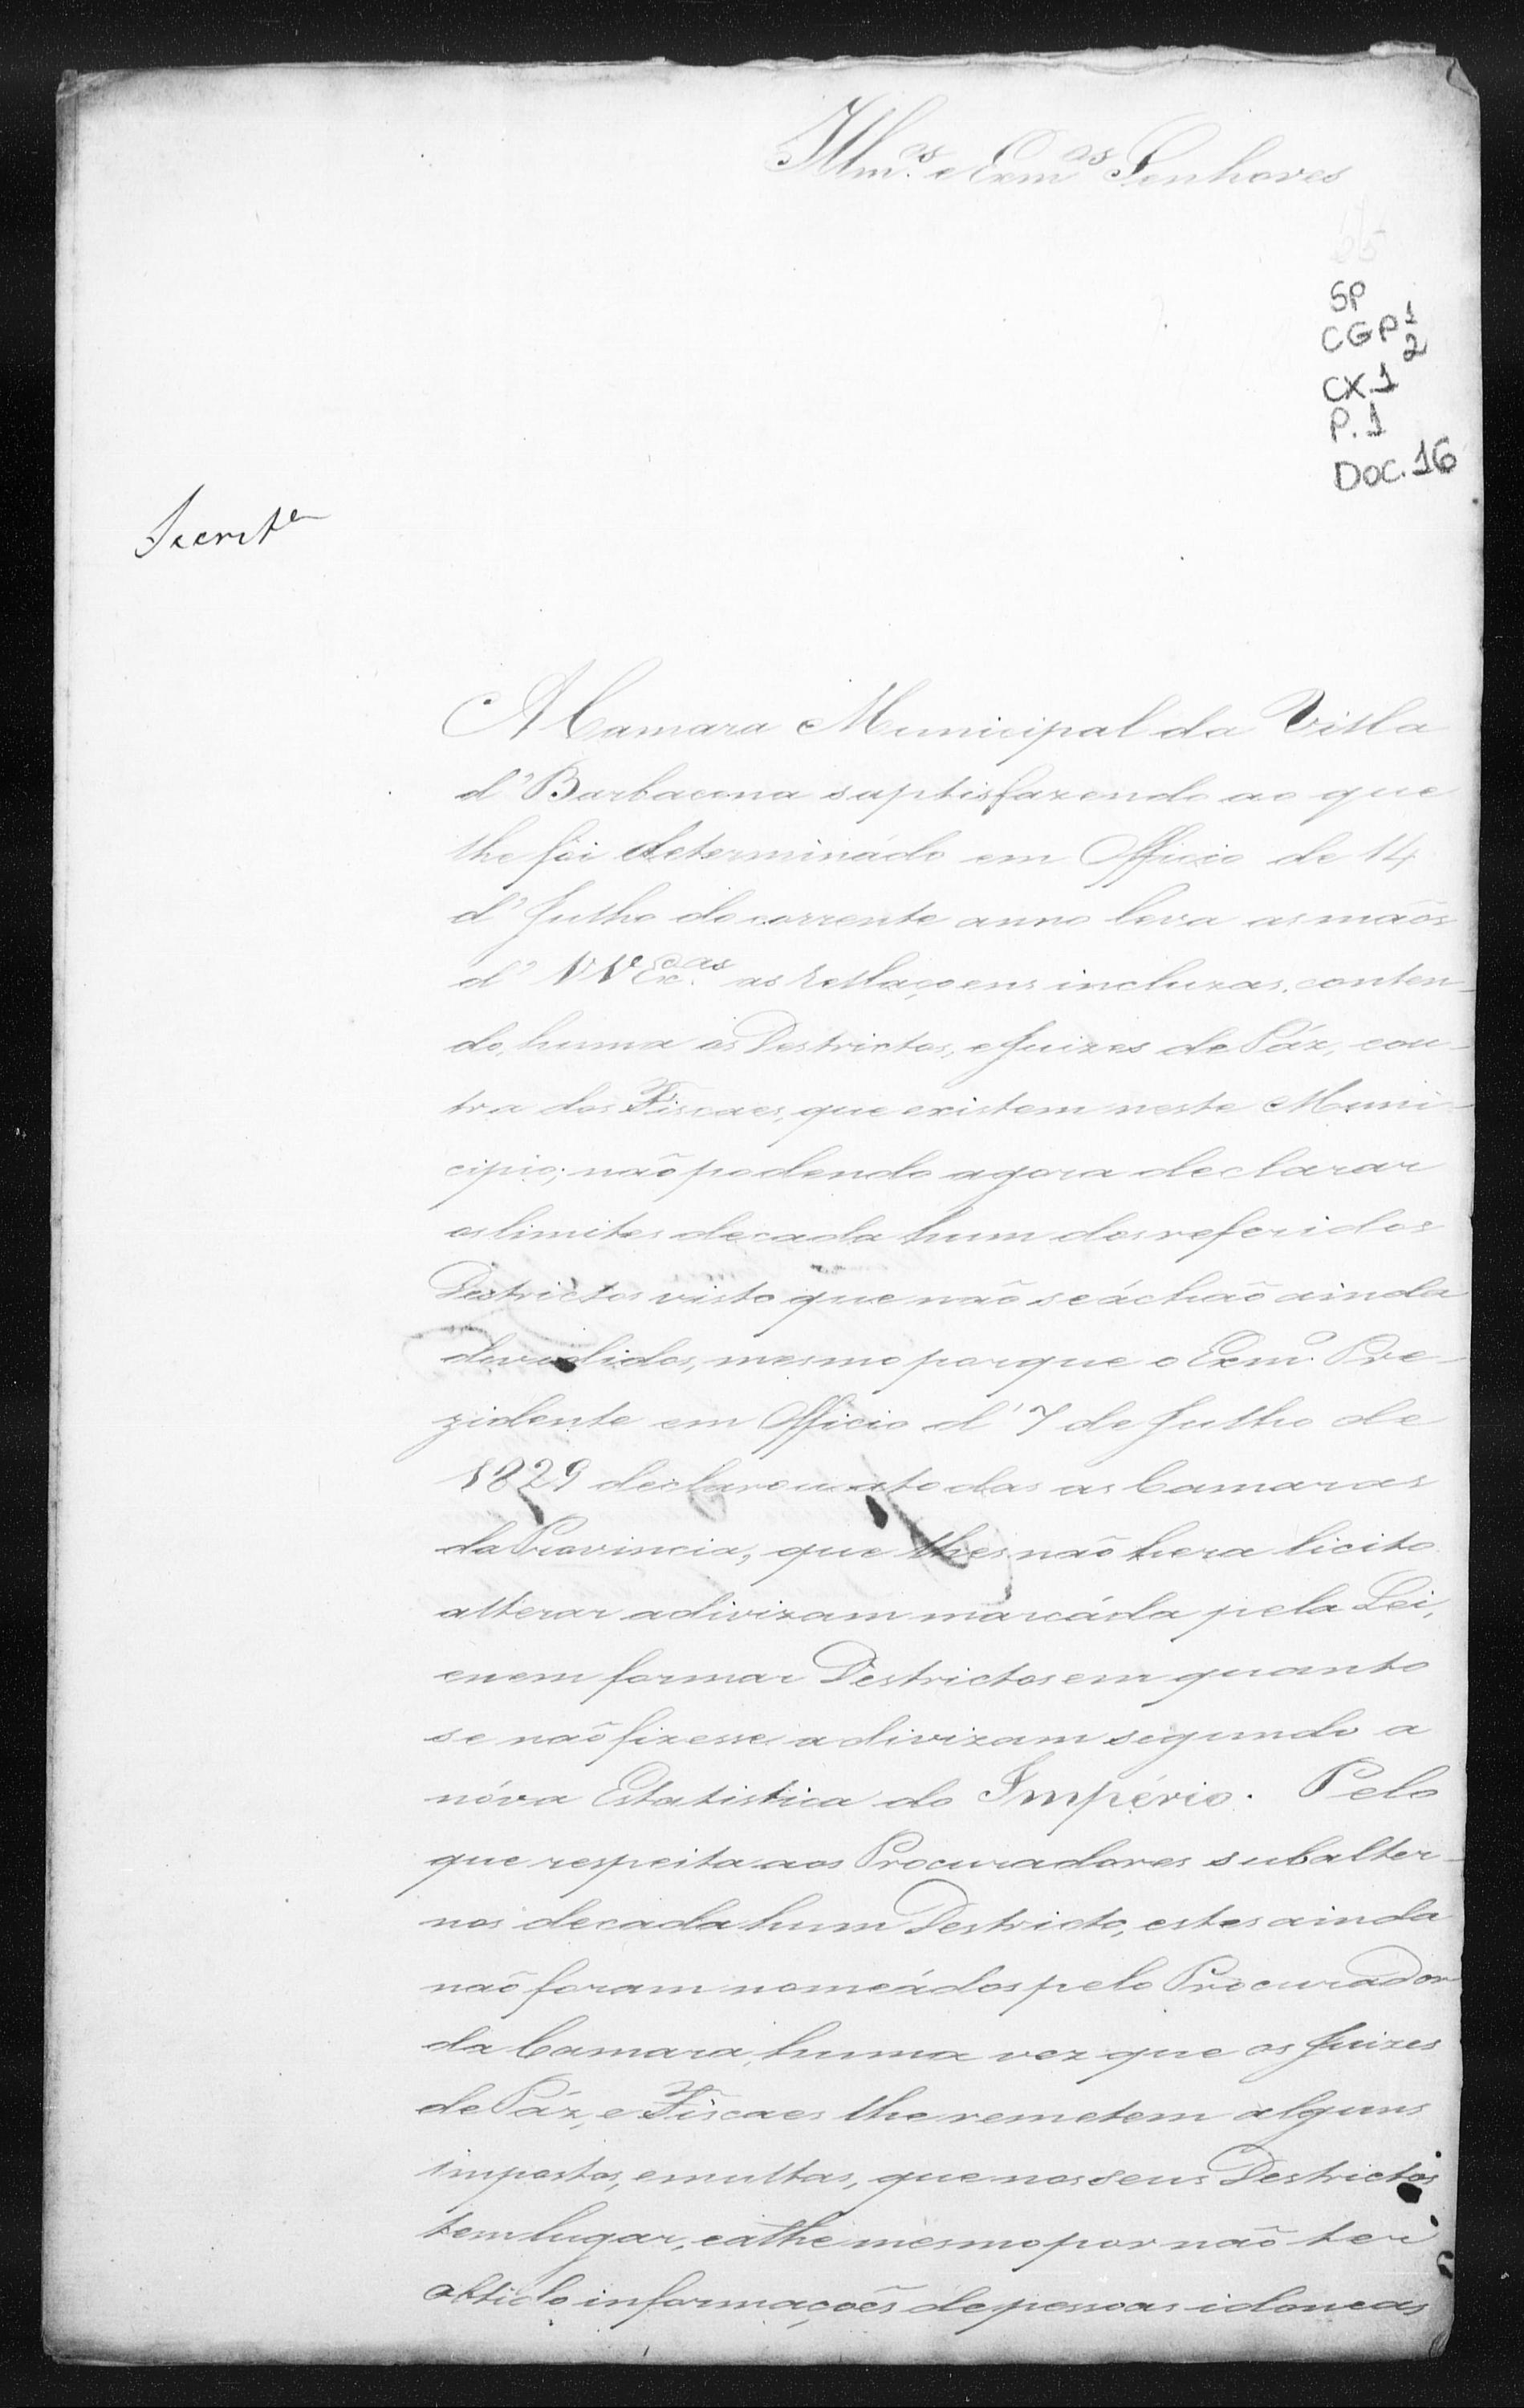 Illm.os e Exm.os Senhores
SP
CGP 1
2
CX.1
P.1
DOC.16
Secret.a
A Camara Municipal da Villa
d' Barbacena saptisfazendo ao que
lhe foi determinádo em Officio de 14
d' Julho do corrente anno leva as maõs
d' VV Ex.as as rellaçoens incluzas, conten-
do, huma os Destrictos, e Juizes de Páz, e ou-
tra dos Fiscaes, que existem neste Muni-
cipio; naõ podendo agora declarar
os limites de cada hum dos referidos
Destrictos visto que naõ se áchaõ ainda
devedidos, mesmo porque o Exm.o Pre-
zidente em Officio d' 7 de Julho de
1829 declarou a todas as Camaras
da Provincia, que lhes naõ hera licito
alterar a divizam marcáda pela Lei,
e nem formar Destrictos em quanto
se naõ fizesse a divizam segundo a
nóva Estatistica do Império. Pelo
que respeita aos Procuradores subalter-
nos de cada hum Destricto, estes ainda
naõ foram nomeádos pelo Procurador
da Camara, huma vez que os Juizes
de Páz, e Fiscaes lhe remetem alguns
impostos, e multas, que nos seus Destrictos
tem lugar, e athe mesmo por naõ ter
obtido informaçoẽs de pessoas idoneas